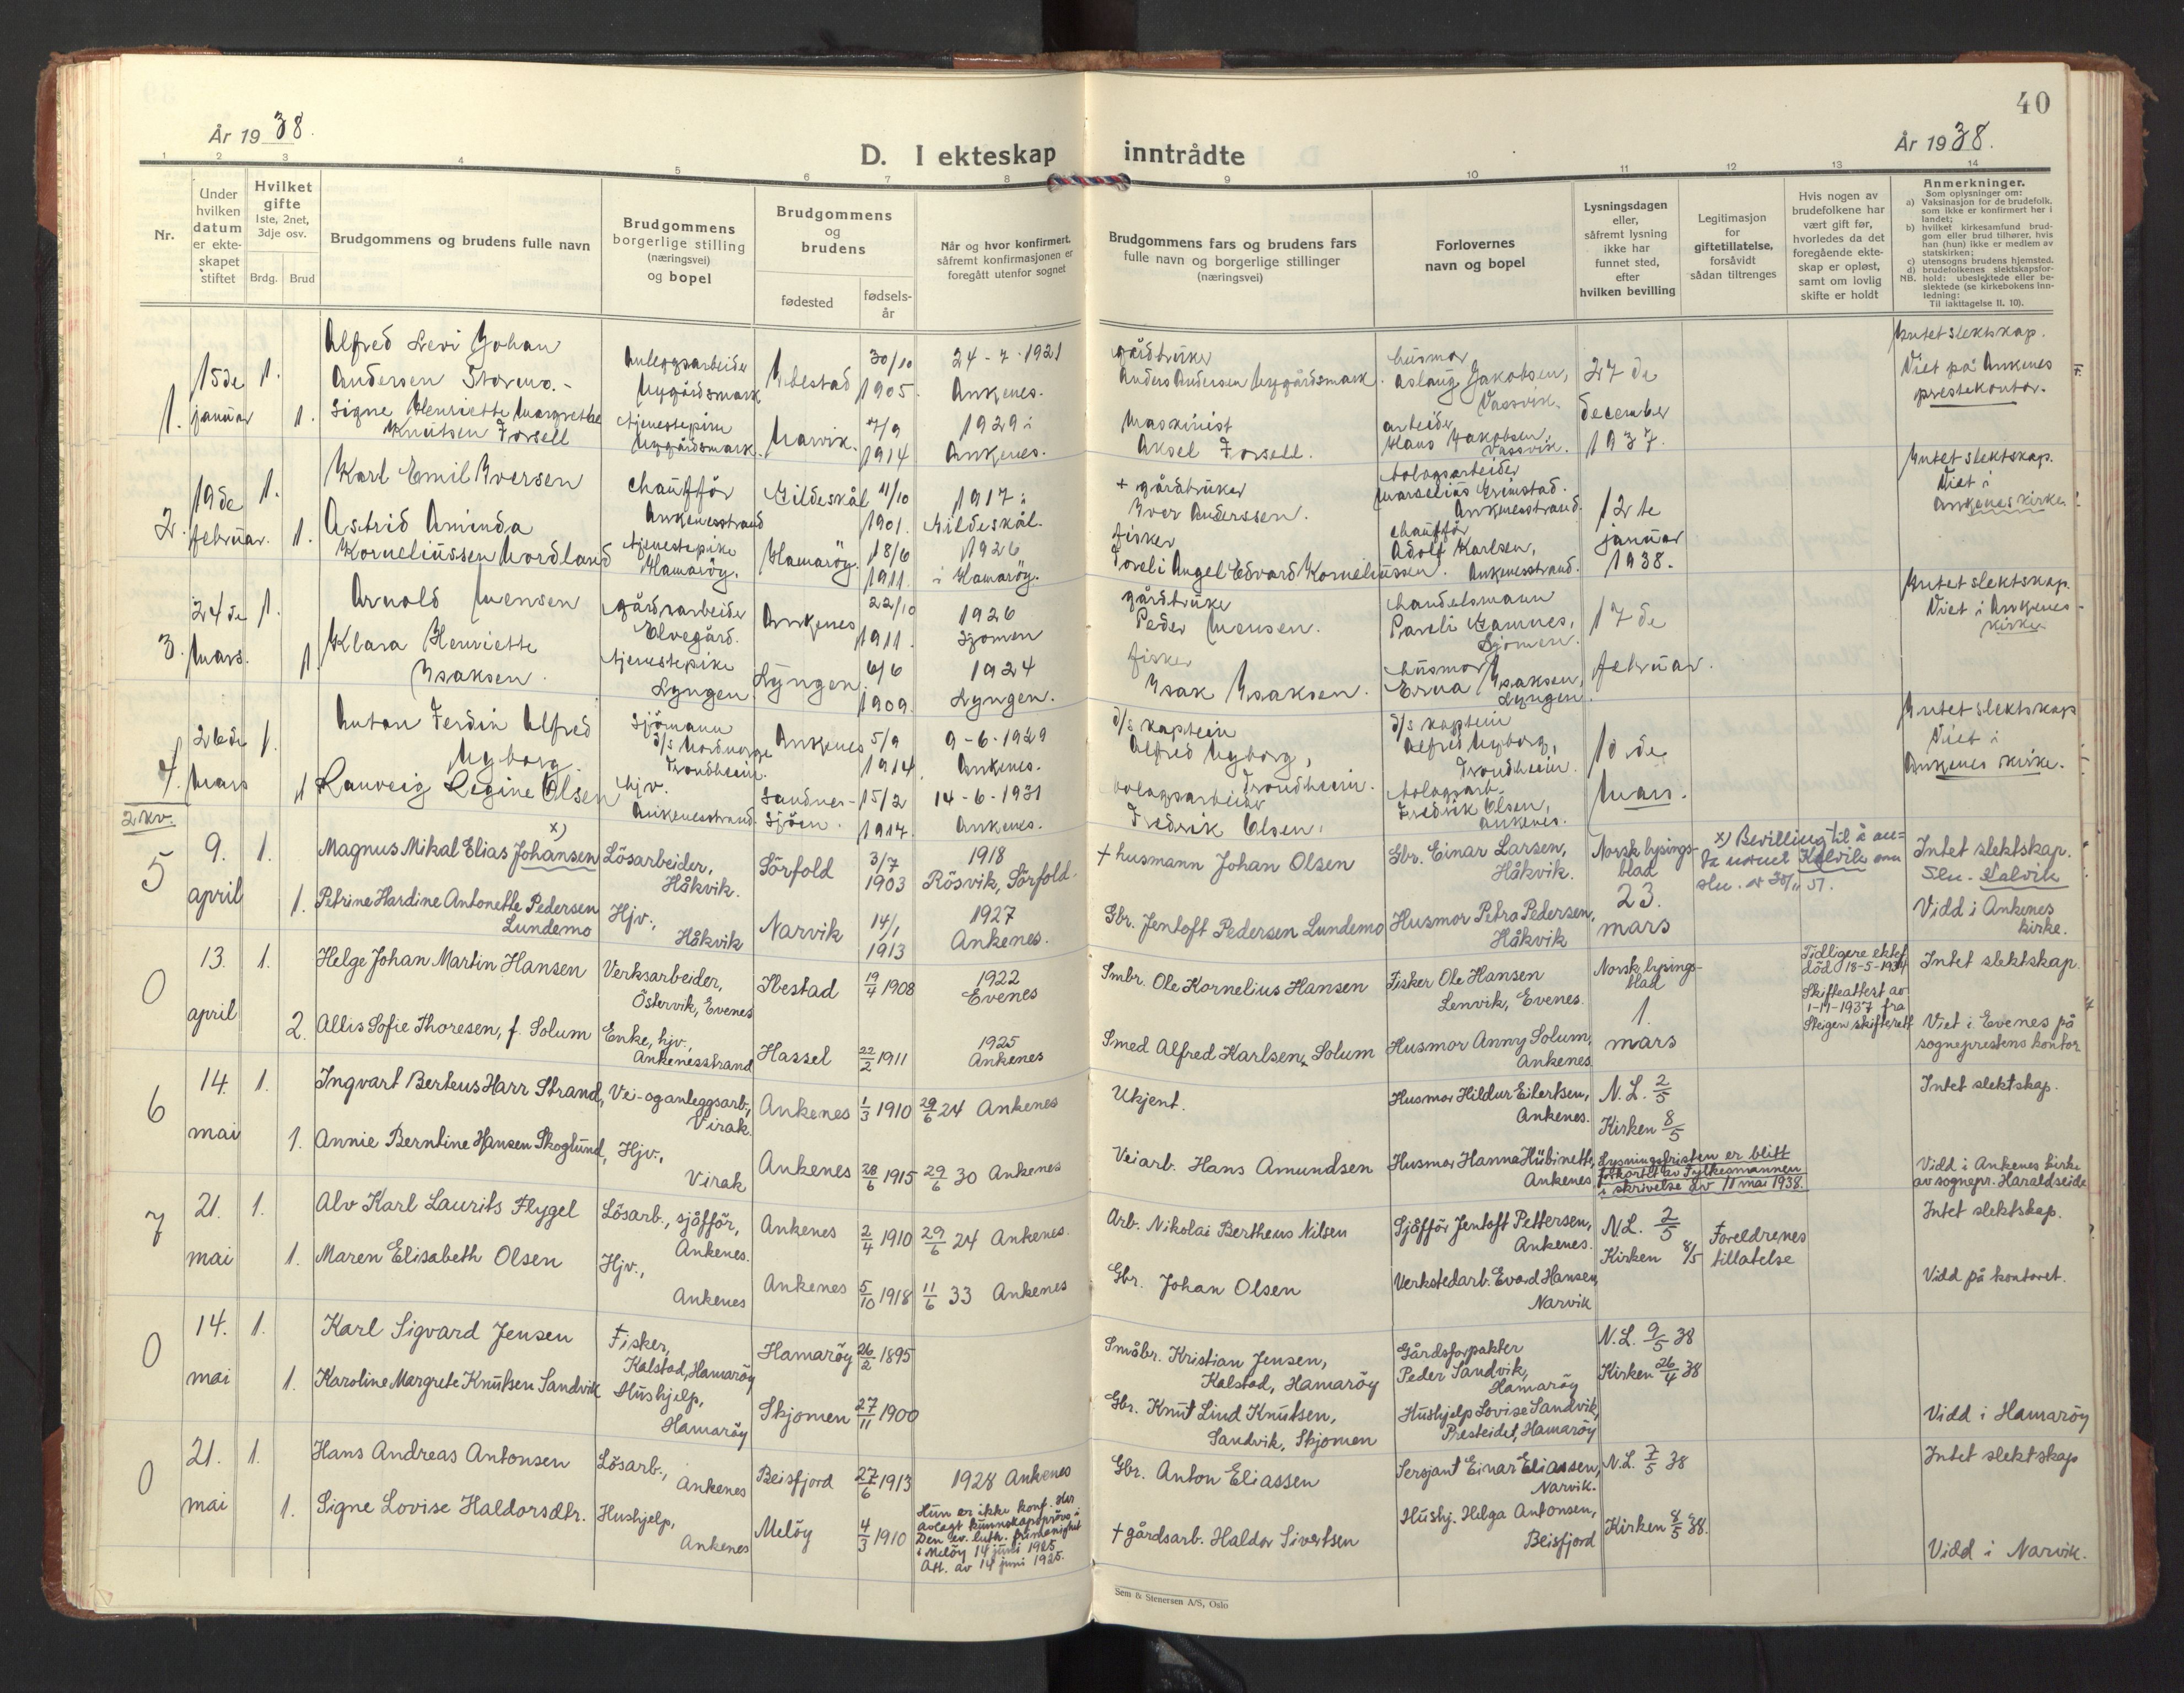 40
År 1938.
År 1938.
D. I ekteskap inntrådte
1 2 3 4 5 6 7 8 9 10 11 12 13 14
Nr.
Under
hvilken
datum
er ekte-
skapet
stiftet
Hvilket
gifte
1ste, 2net,
3dje osv.
Brdg. Brud
Brudgommens og brudens fulle navn
Brudgommens
borgerlige stilling
(næringsvei)
og bopel
Brudgommens
og
brudens
fødested
fødsels-
år
Når og hvor konfirmert,
såfremt konfirmasjonen er
foregått utenfor sognet
Brudgommens fars og brudens fars
fulle navn og borgerlige stillinger
(næringsvei)
Forlovernes
navn og bopel
Lysningsdagen
eller,
såfremt lysning
ikke har
funnet sted,
efter
hvilken bevilling
Legitimasjon
for
giftetillatelse,
forsåvidt
sådan tiltrenges
Hvis nogen av
brudefolkene har
vært gift før,
hvorledes da det
foregående ekte-
skap er opløst,
samt om lovlig
skifte er holdt
Anmerkninger.
Som oplysninger om:
a) Vaksinasjon for de brudefolk,
som ikke er konfirmert her i
landet;
b) hvilket kirkesamfund brud-
gom eller brud tilhører, hvis
han (hun) ikke er medlem av
statskirken;
c) utensogns brudens hjemsted.
d) brudefolkenes slektskapsfor-
NB. hold: ubeslektede eller be-
slektede (se kirkebokens inn-
ledning:
Til iakttagelse II. 10).
1. 15de januar 1. 1.
Alfred Levi Johan
Andersen Stormo.-
Anleggsarbeider
Nygårdsmark
Ibestad
30/10
1905.
24-7-1921
Ankenes.
gårdbruker
Anders Andersen Nygårdsmark.
husmor
Aslaug Jakobsen,
Vassvik.
27de
december
1937.
Intet slektskap.
Viet på Ankenes
prestekontor.
Signe Henriette Margrethe
Knutsen Forsell
tjenestepike
Nygårdsmark.
Narvik.
7/9
1914
1929 i
Ankenes.
Maskinist
Aksel Forsell.
arbeider
Hans Jakobsen,
Vassvik.
2. 19de februar. 1. 1.
Karl Emil Iversen
chauffør
Ankenesstrand
Gildeskål
11/10
1901.
1917 i
Gildeskål.
+ gårdbruker
Iver Anderssen.
bolagsarbeider
Marselius Grimstad.
Ankenesstrand.
12te
januar
1938.
Intet slektskap.
Viet i
Ankenes kirke
Astrid Aminda
Korneliussen Nordland
tjenestepike
Hamarøy.
Hamarøy.
18/6
1911.
1926
i Hamarøy.
fisker
Toreli Angel Edvard Korneliussen.
chauffør
Adolf Karlsen,
Ankenesstrand.
3. 24de Mars. 1. 1
Arnold Mensen
gårdsarbeider
Elvegård.
Ankenes
22/10
1911.
1926
Sjomen
gårdbruker
Peder Mensen.
handelsmann
Pareli Gamnes,
Sjomen.
17de
februar.
Intet slektskap.
Viet i Ankenes
kirke.
Klara Henriette
Isaksen.
tjenestepike
Lyngen
Lyngen.
6/6
1909.
1924
Lyngen.
fisker
Isak Isaksen.
husmor
Erna Isaksen,
Lyngen.
4. 26de Mars 1. 1
Anton Ferdin Alfred
Nyborg.
sjømann
d/s Nordnorge
Trondheim.
Ankenes
5/9
1914.
9-6-1929
Ankenes.
d/s kaptein
Alfred Nyborg,
Trondheim.
d/s kaptein
Alfred Nyborg,
Trondheim.
10de
Mars.
Intet slektskap
Viet i
Ankenes kirke.
Lauveig Regine Olsen
hjv.
Ankenesstrand.
Sandnes-
sjøen.
15/2
1914.
14-6-1931
Ankenes.
bolagsarbeider
Fredrik Olsen.
bolagsarb.
Fredrik Olsen,
Ankenes.
2 kv.
5 9. april 1. 1.
x)
Magnus Mikal Elias Johansen
Lösarbeider,
Håkvik.
Sörfold
3/7
1903
1918
Rösvik, Sörfold.
+ husmann Johan Olsen
Gbr. Einar Larsen,
Håkvik.
Norsk lysings-
blad
23.
mars
x) Bevilling til å an=
ta navnet Kalvik som
slu. av 30/11 51.
Intet slektskap.
Slu. Kalvik
Vidd i Ankenes
kirke.
Petrine Hardine Antonette Pedersen
Lundemo
Hjv.,
Håkvik
Narvik
14/1
1913
1927
Ankenes.
Gbr. Jentoft Pedersen Lundemo
Husmor Petra Pedersen,
Håkvik
0 13. april 1. 2.
Helge Johan Martin Hansen
Verksarbeider,
Östervik, Evenes
Ibestad
19/4 1908
1922
Evenes
Smbr. Ole Kornelius Hansen
Fisker Ole Hansen
Lenvik, Evenes.
Norsk lysings-
blad
1.
mars
Tidligere ektef.
död 18-5-1934
Skifteattest av
1-19-1937 fra
Steigen skifterett
Intet slektskap.
Viet i Evenes på
sogneprestens kontor
Allis Sofie Thoresen, f. Solum
Enke, hjv.,
Ankenesstrand
Hassel
22/2 1911
1925
Ankenes
Smed Alfred Karlsen Solum
Husmor Anny Solum,
Ankenes
6 14. mai 1. 1.
Ingvart Berteus Harr Strand,
Vei- og anleggsarb.,
Virak.
Ankenes
1/3 1910
29/6 24 Ankenes
Ukjent.
Husmor Hildur Eilertsen,
Ankenes.
N.L. 2/5
Kirken 8/5
Intet slektskap.
Annie Berntine Hansen Skoglund,
Hjv.,
Virak
Ankenes
28/6 1915
29/6 30 Ankenes
Veiarb. Hans Amundsen
Husmor Hanna Hübinette,
Ankenes
Lysningsfristen er blitt
forkortet av Fylkesmannen
i skrivelse av 11 mai 1938.
Vidd i Ankenes kirke
av sognepr. Haraldseide
7 21. mai 1. 1.
Alv Karl Laurits Flygel
Lösarb., sjåffør,
Ankenes.
Ankenes
2/4 1910
29/6 24 Ankenes.
Arb. Nikolai Bertheus Nilsen
Sjåffør Jentoft Pettersen,
Ankenes.
N.L. 2/5
Kirken 8/5
Foreldrenes
tillatelse
Intet slektskap.
Maren Elisabeth Olsen
Hjv.,
Ankenes
Ankenes
5/10 1918
11/6 33 Ankenes
Gbr. Johan Olsen
Verkstedarb. Evard Hansen,
Narvik
Vidd på kontoret.
0 14. mai 1. 1.
Karl Sigvard Jensen
Fisker,
Kalstad, Hamaröy
Hamaröy
26/2 1895
Småbr. Kristian Jensen,
Kalstad, Hamaröy
Gårdsforpakter
Peder Sandvik,
Hamaröy
N.L. 9/5 38
Kirken 26/4 38
Karoline Margrete Knutsen Sandvik
Hushjelp,
Hamaröy
Skjomen
27/11 1900
Gbr. Knut Lind Knutsen,
Sandvik, Skjomen
Hushjelp Lovise Sandvik,
Presteidet, Hamaröy
Vidd i Hamaröy
0 21. mai 1. 1.
Hans Andreas Antonsen
Lösarb.,
Ankenes
Beisfjord
27/6 1913
1928 Ankenes
Gbr. Anton Eliassen
Sersjant Einar Eliassen,
Narvik.
N.L. 7/5 38
Kirken 8/5 38.
Intet slektskap
Signe Lovise Haldorsdtr.
Hushjelp,
Ankenes
Melöy
4/3 1910
Hun er ikke konf. Har
avlagt kunnskapspröve i
Den ev. luth. frimenighet
i Melöy 14 juni 1925
Att. av 14 juni 1925.
+ gårdsarb. Haldor Sivertsen
Hushj. Helga Antonsen,
Beisfjord
Vidd i Narvik.
Sem & Stenersen A/S, Oslo